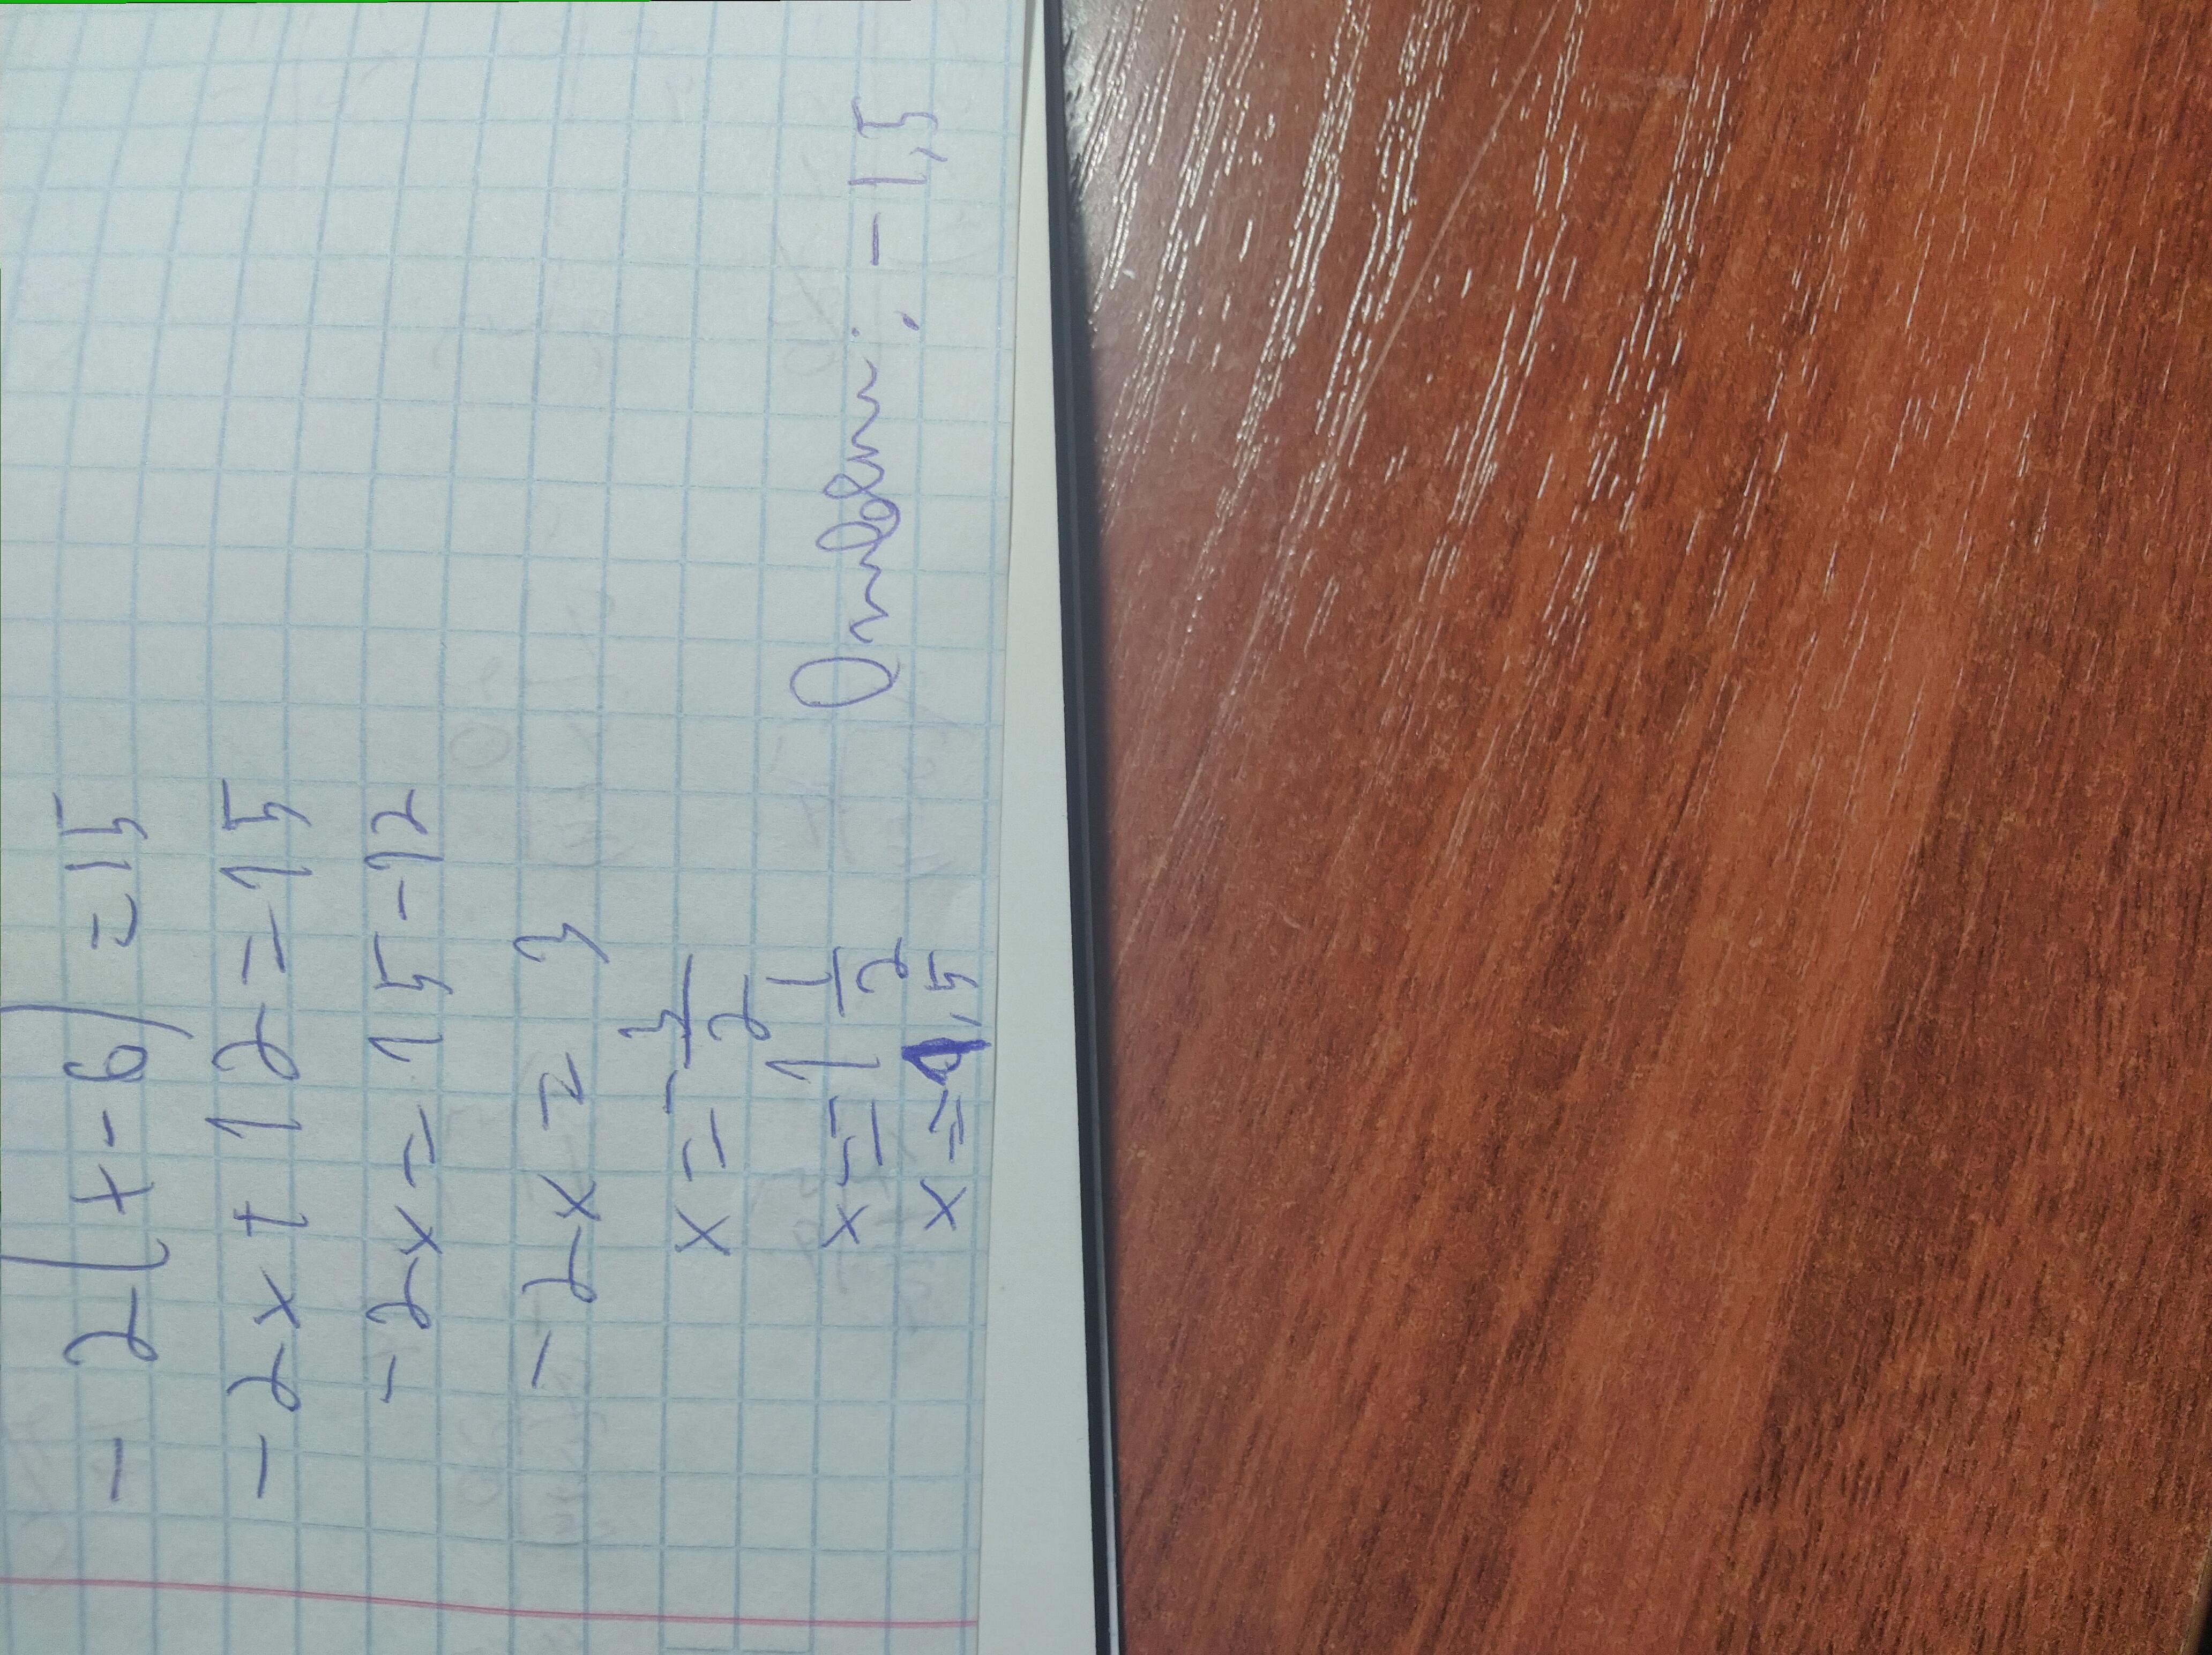 -2(x-6)=15
-2x+12=15
-2x=15-12
-2x=3
x=-3/2
x=-1 1/2 Ответ: -1,5
x=-1,5